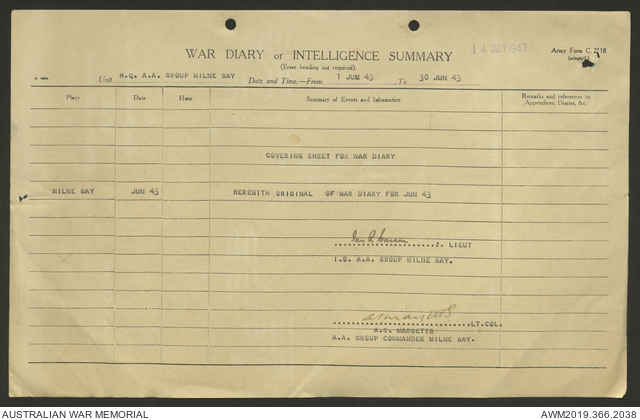 14 JULY 1943
Army Form C. 2118
WAR DIARY or INTELLIGENCE SUMMARY
(Erase heading not required).
Unit H.Q. A.A. GROUP MILNE BAY Date and Time.—From 1 JUN 43 To 30 JUN 43
Place Date Hour Summary of Events and Information Remarks and references to Appendices, Diaries, &c.
COVERING SHEET FOR WAR DIARY
MILNE BAY JUN 43 HEREWITH ORIGINAL OF WAR DIARY FOR JUN 43
LIEUT
I.O. A.A. GROUP MILNE BAY.
LT.COL.
A.S. MARGETTS
A.A. GROUP COMMANDER MILNE BAY.
AUSTRALIAN WAR MEMORIAL AWM2019.366.2038